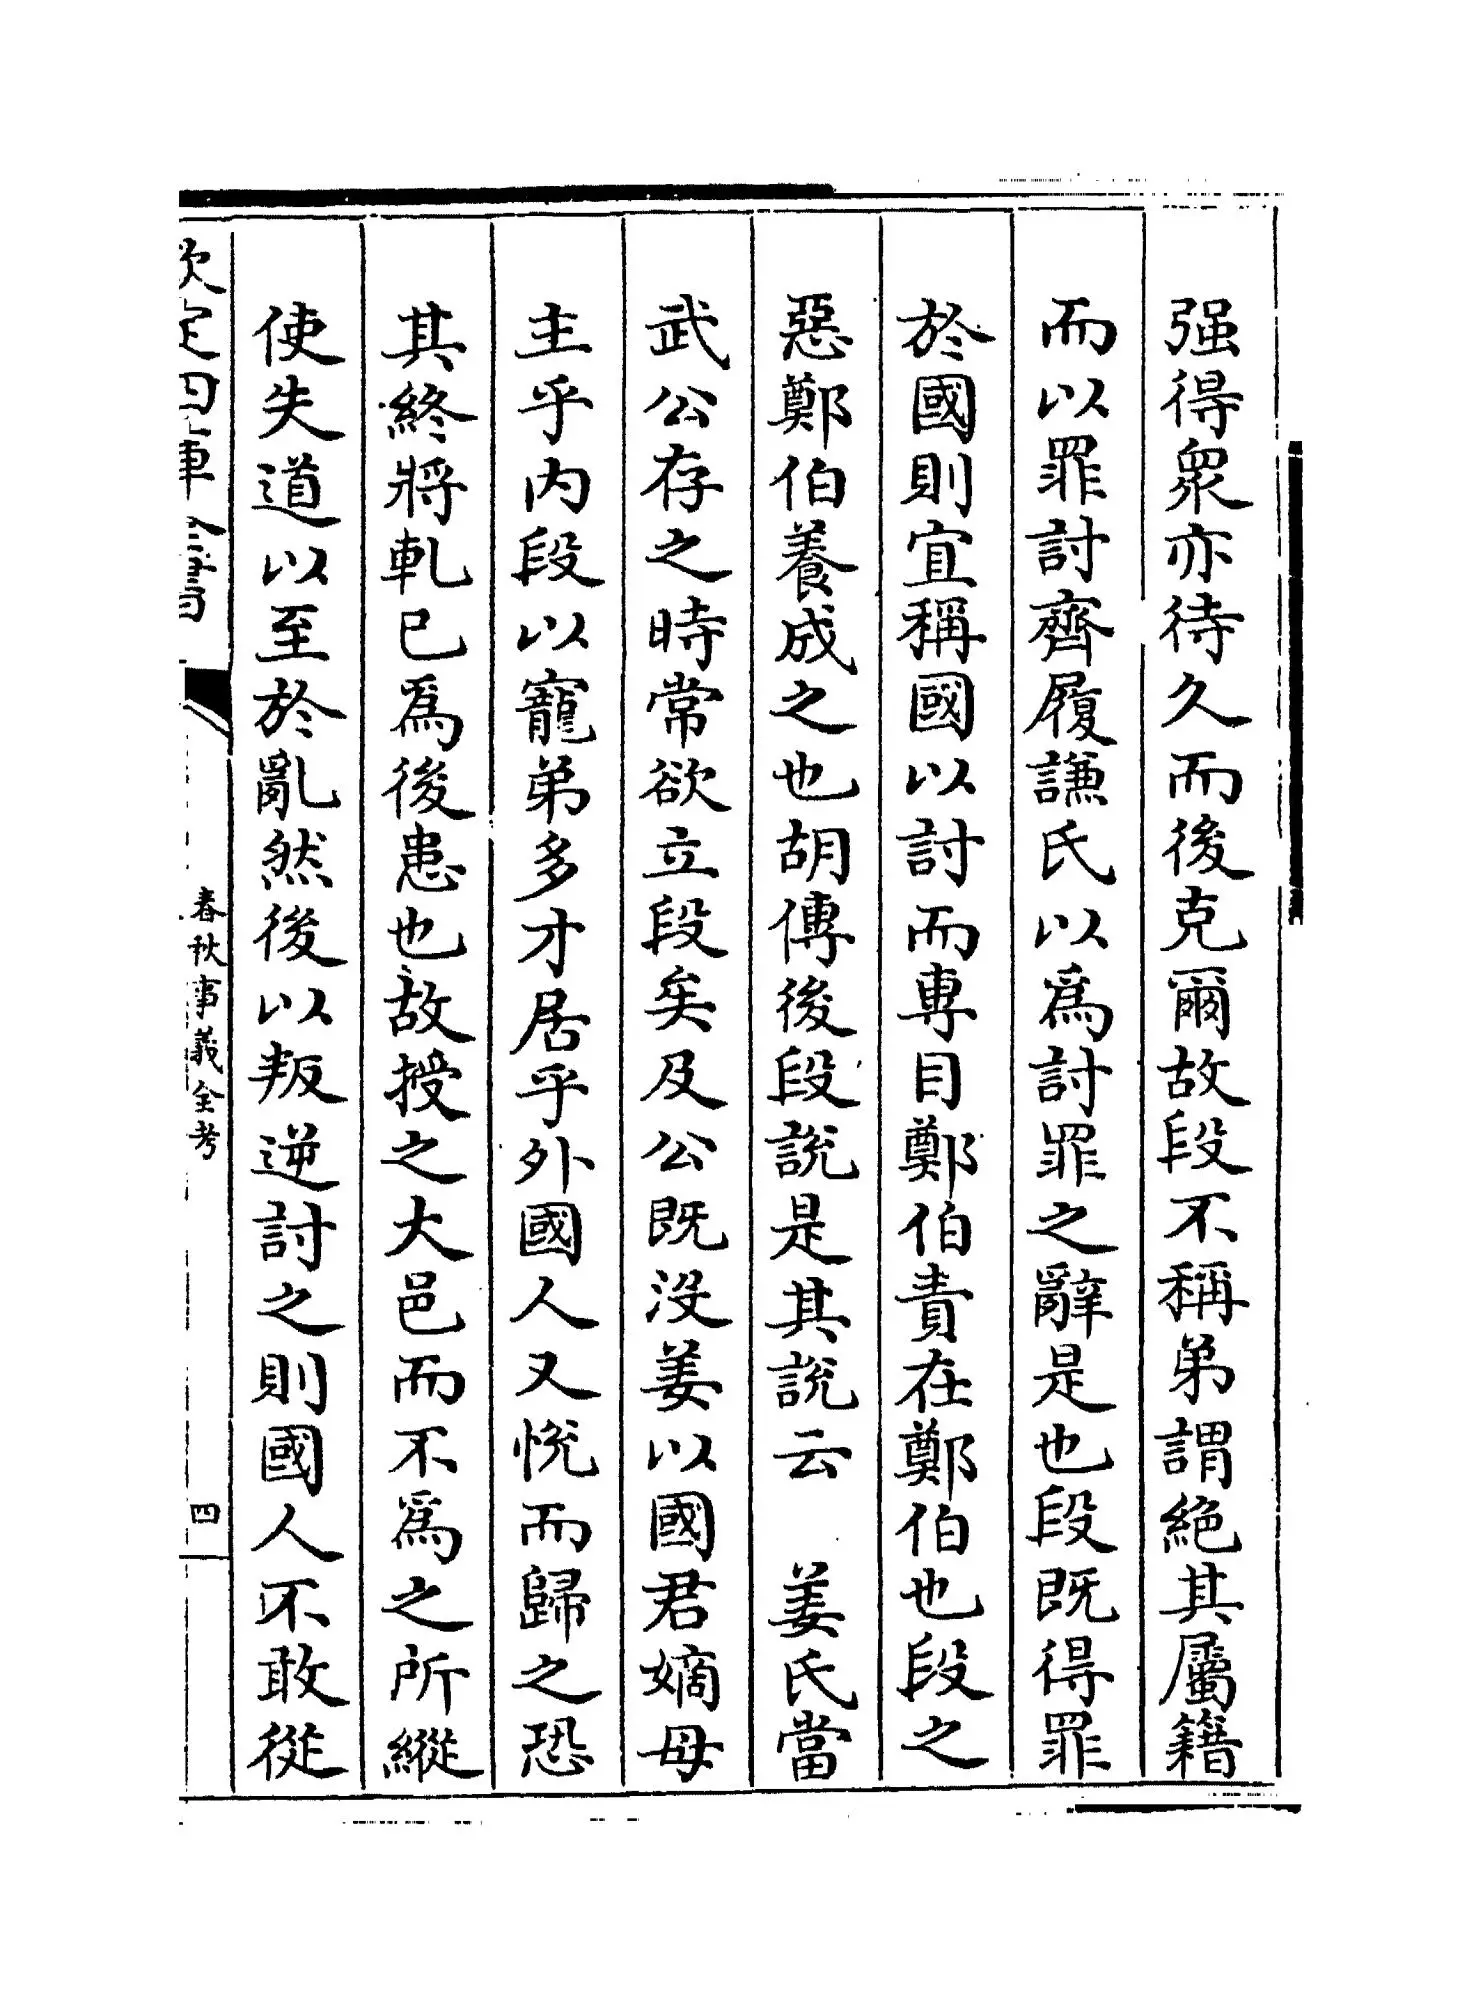 强得衆亦待久而後克爾故段不稱弟謂絶其屬籍
而以罪討齊履謙氏以爲討罪之辭是也段既得罪
於國則宜稱國以討而專目鄭伯責在鄭伯也段之
惡鄭伯養成之也胡傳後段說是其說云　姜氏當
武公存之時常欲立段矣及公既没姜以國君嫡母
主乎内段以寵弟多才居乎外國人又悅而歸之恐
其終將軋已爲後患也故授之大邑而不爲之所縱
使失道以至於亂然後以叛逆討之則國人不敢從
欽定四庫全書
春秋事義全考
四